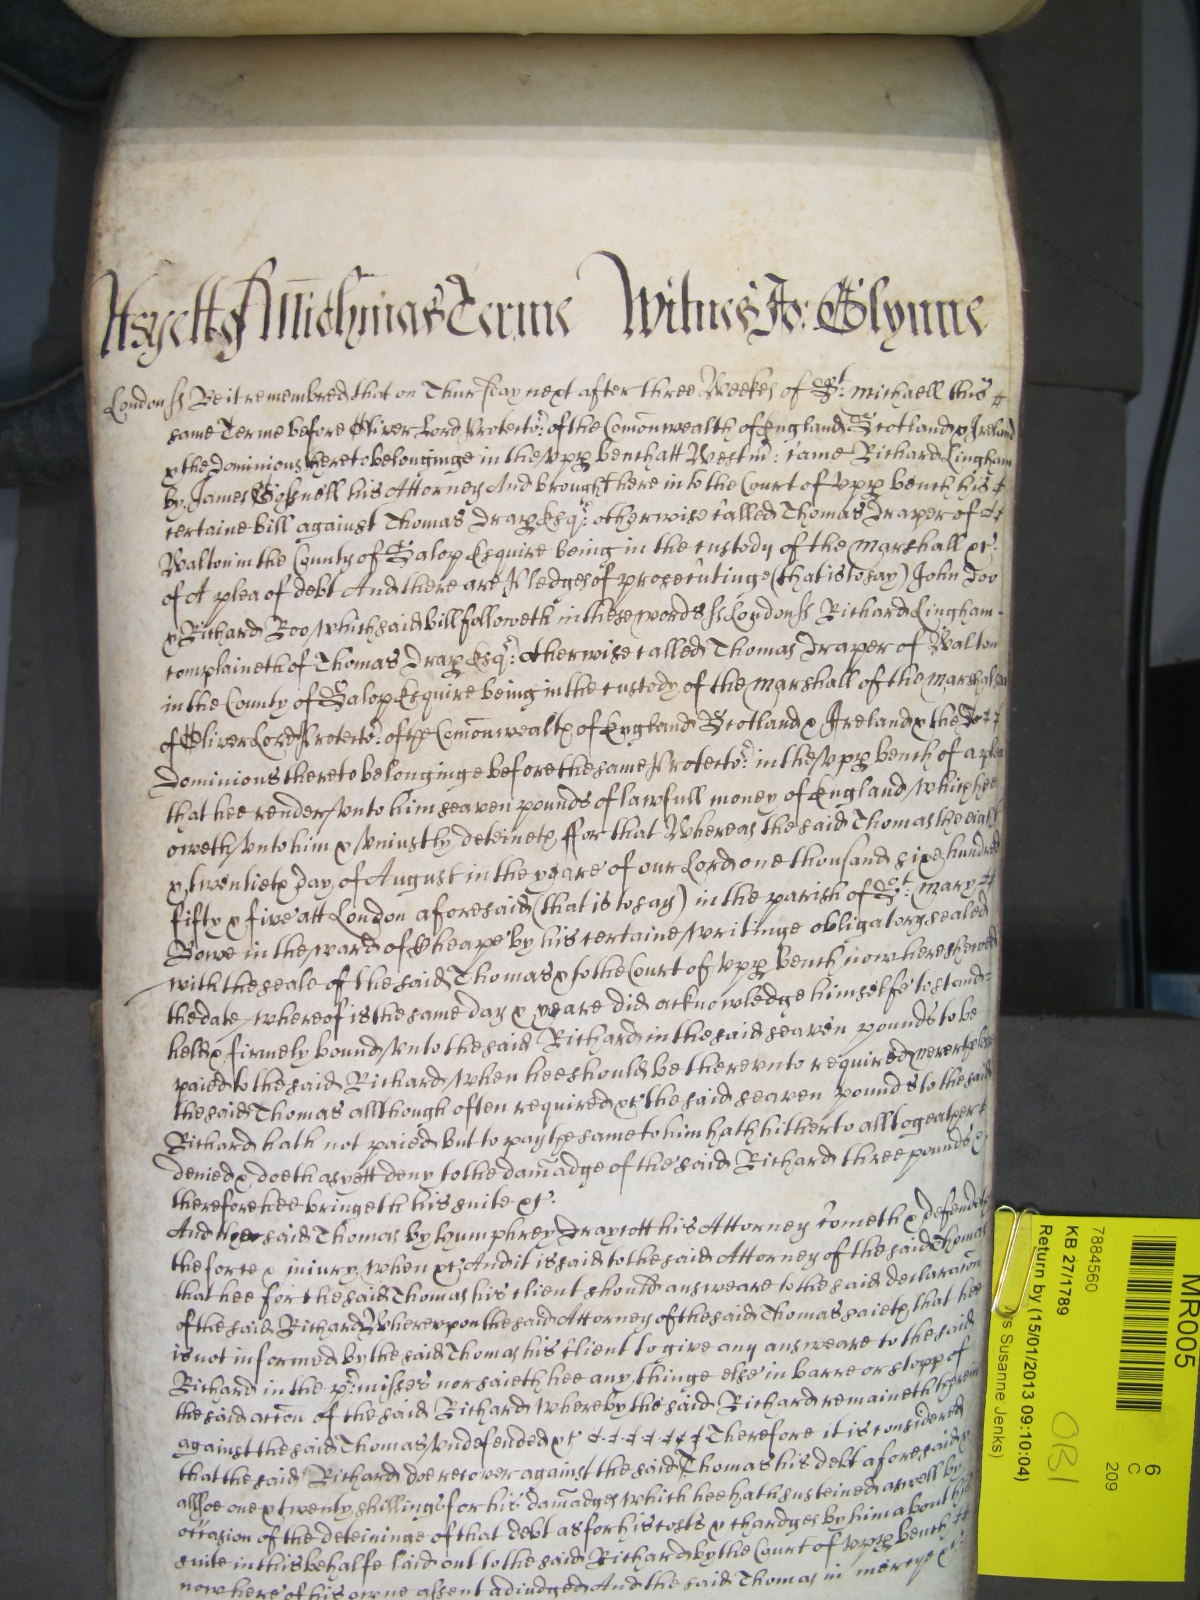 Hsyetts Michmas Terme Witnes Jo: Glynne
London ss Be it remembred that on Thursday next after three Weekes of St: Michaell this
same Terme before Oliver Lord Protector: of the Comonwealth of England Scotland & Ireland
& the Dominions thereto belonginge in the upp bench att Westm: came Richard Lingham
by James his Attorney And brought here into the Court of upp bench his
certaine bill against Thomas Drap Esqr: otherwise called Thomas Draper of
Walton in the County of Salop Esquire being in the custody of the Marshall &c:
of A plea of debt And there are Pledges of prosecutinge (that is to say) John Doo
& Richard Roo which said bill followeth in these words ss London ss Richard Lingham
complaineth of Thomas Drap Esqr: otherwise called Thomas Draper of Walton
in the County of Salop Esquire being in the custody of the Marshall of the Marshalsea
of Oliver Lord Protector: of the Comonwealth of England Scotland & Ireland & the
Dominions thereto belonginge before the same Protector: in the upp bench of a plea
that hee render unto him seaven pounds of lawfull money of England which hee
oweth unto him & uniustly deteineth ffor that Whereas the said Thomas the eight
& twentieth day of August in the yeare of our Lord one thousand sixe hundred
fifty & five att London aforesaid (that is to say) in the parish of St: Mary
Bowe in the ward of Cheape by his certaine writinge obligatory sealed
with the seale of the said Thomas & to the Court of upp bench now here shewed
the date whereof is the same day & yeare did acknowledge himselfe to stand
held & firmely bound unto the said Richard in the said seaven pounds to be
paied to the said Richard when hee should be thereunto required neverthelesse
the said Thomas allthough often required &c the said seaven pounds to the said
Richard hath not paied but to pay the same to him hath hitherto alltogeather
denied & doeth as yett deny to the damadge of the said Richard three pounds &
therefore hee bringeth his suite &c:
And the said Thomas by Humphrey Draycott his Attorney cometh & defendeth
the force & iniury when &c And it is said to the said Attorney of the said Thomas
that hee for the said Thomas his client should answeare to the said declaracon
of the said Richard Whereupon the said Attorney of the said Thomas saieth that hee
is not informed by the said Thomas his client to give any answeare to the said
Richard in the p:misses nor saieth hee any thinge else in barre or stopp of
the said accon of the said Richard whereby the said Richard remaineth therein
against the said Thomas undefended &c Therefore it is considered
that the said Richard doe recover against the said Thomas his debt aforesaid &
allsoe one & twenty shillings for his damadges which hee hath susteined aswell by
occasion of the deteininge of that debt as for his costs & chardges by him about this
suite in this behalfe laid out to the said Richard by the Court of upp bench
now here of his owne assent adiudged And the said Thomas in mercye &c:
MR005
7884560
KB 27/1789
Return by (15/01/2013 09:10:04)
s Susanne Jenks)
OB1
6
C
209